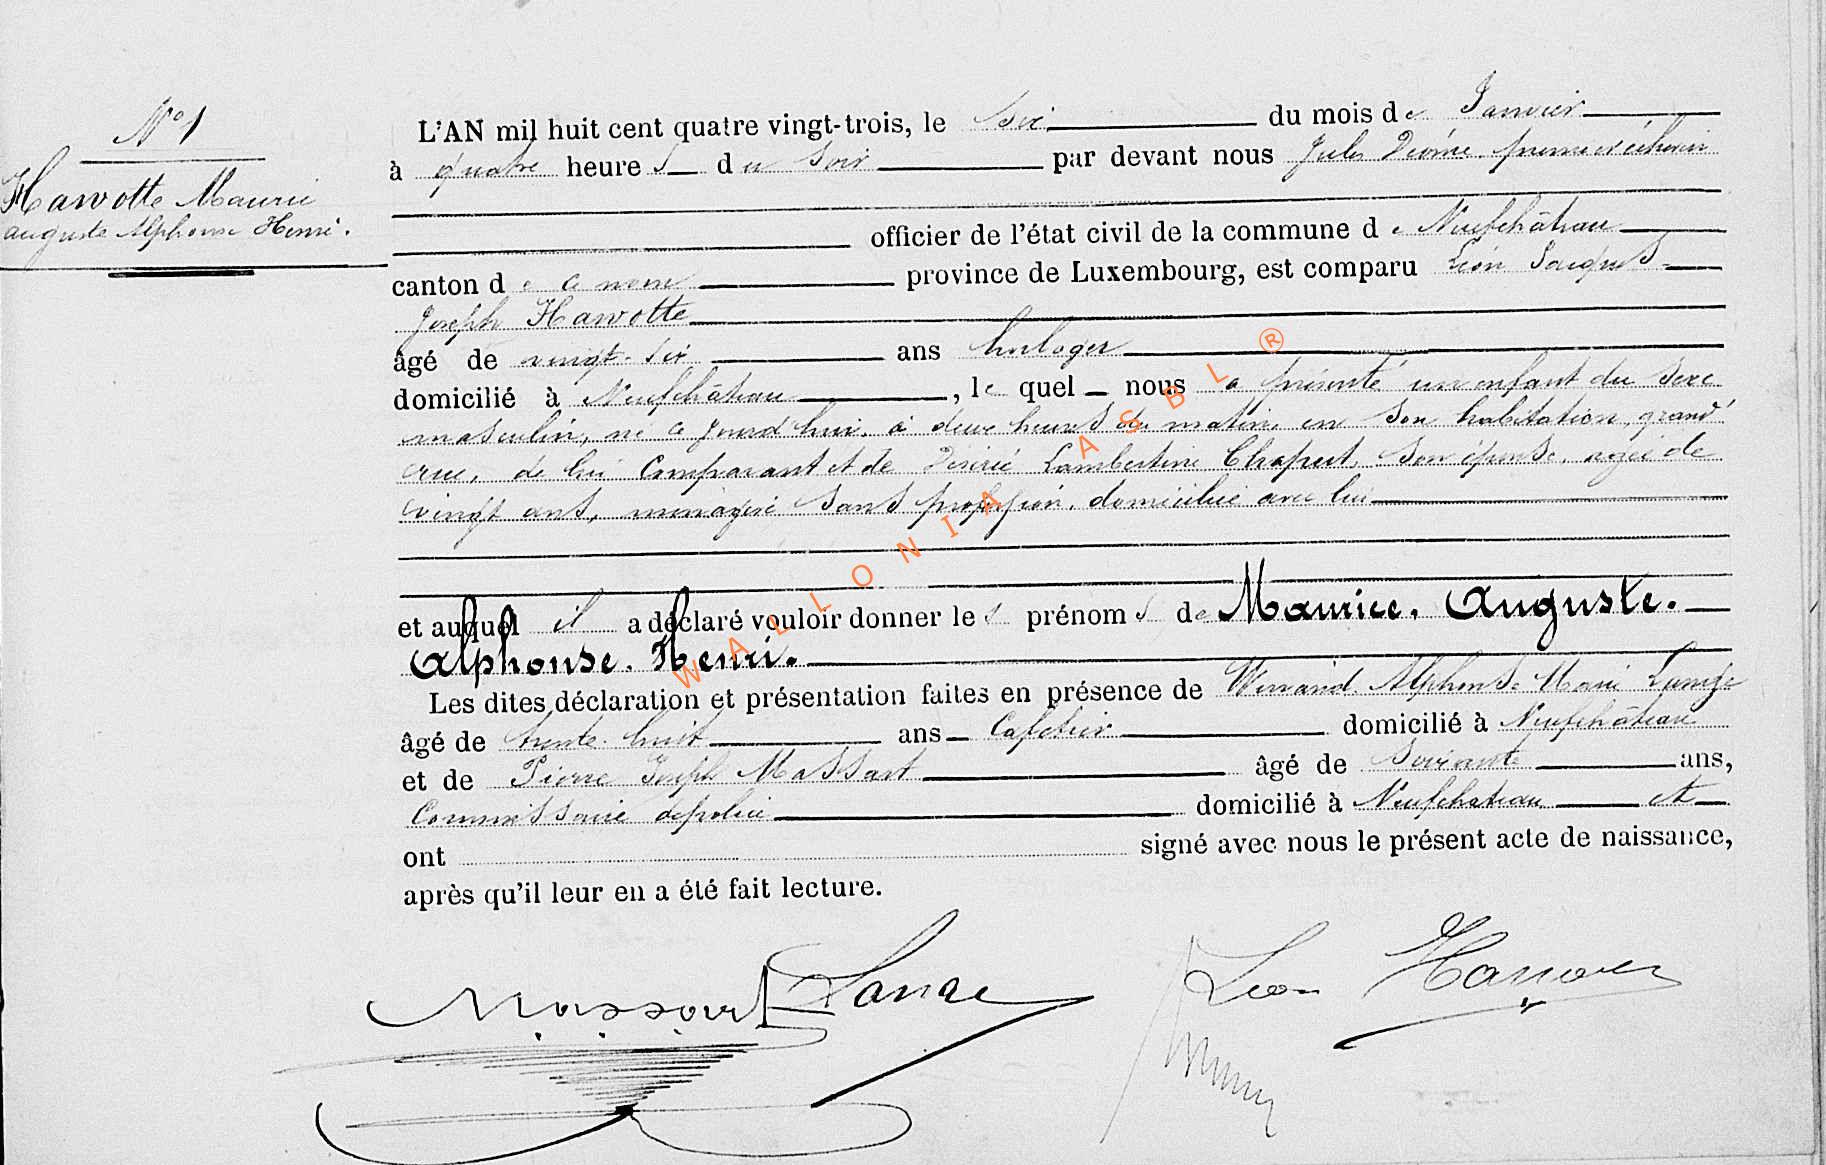 N° 1
Hawotte Maurice
Auguste Alphonse Henri.
L'AN mil huit cent quatre vingt-trois, le six du mois de Janvier
à quatre heures du soir par devant nous Jules premier échevin
officier de l'état civil de la commune de Neufchâteau
canton de ce nom province de Luxembourg, est comparu Léon Jacques
Joseph Hawotte
âgé de vingt-six ans horloger
domicilié à Neufchâteau, lequel nous a présenté un enfant du sexe
masculin, né ce jourd'hui, à deux heures du matin en son habitation, grand'
rue, de lui comparant et de Désirée Lambertine Chaput, son épouse, agée de
vingt ans, ménagère sans profession, domiciliée avec lui
et auquel il a déclaré vouloir donner les prénoms de Maurice, Auguste.
Alphonse. Henri.
Les dites déclaration et présentation faites en présence de Alphonse Marie
âgé de trente-huit ans Cafetier domicilié à Neufchâteau
et de Pierre Joseph Massart âgé de soixante ans,
Commissaire de police domicilié à Neufchateau et
ont signé avec nous le présent acte de naissance,
après qu'il leur en a été fait lecture.
Massart Léon Hawotte
WALLONIA ASBL ®